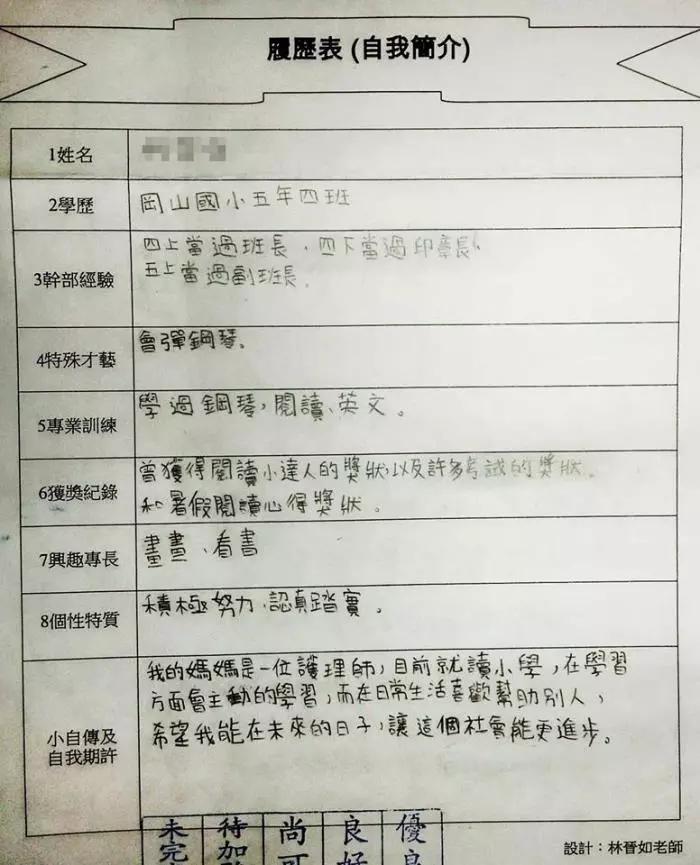 履歷表 (自我簡介)
1姓名
2學歷
岡山國小五年四班
3幹部經驗
四上當過班長、四下當過印章長、
五上當過副班長.
4特殊才藝
會彈鋼琴。
5專業訓練
學過鋼琴,閱讀、英文。
6獲獎紀錄
曾獲得閱讀小達人的獎狀,以及許多考試的獎狀、
和暑假閱讀心得獎狀。
7興趣專長
畫畫、看書
8個性特質
積極努力、認真踏實。
小自傳及
自我期許
我的媽媽是一位護理師,目前就讀小學,在學習
方面會主動的學習,而在日常生活喜歡幫助別人,
希望我能在未來的日子,讓這個社會能更進步。
未完
待加
尚可
良好
優良
設計:林晉如老師